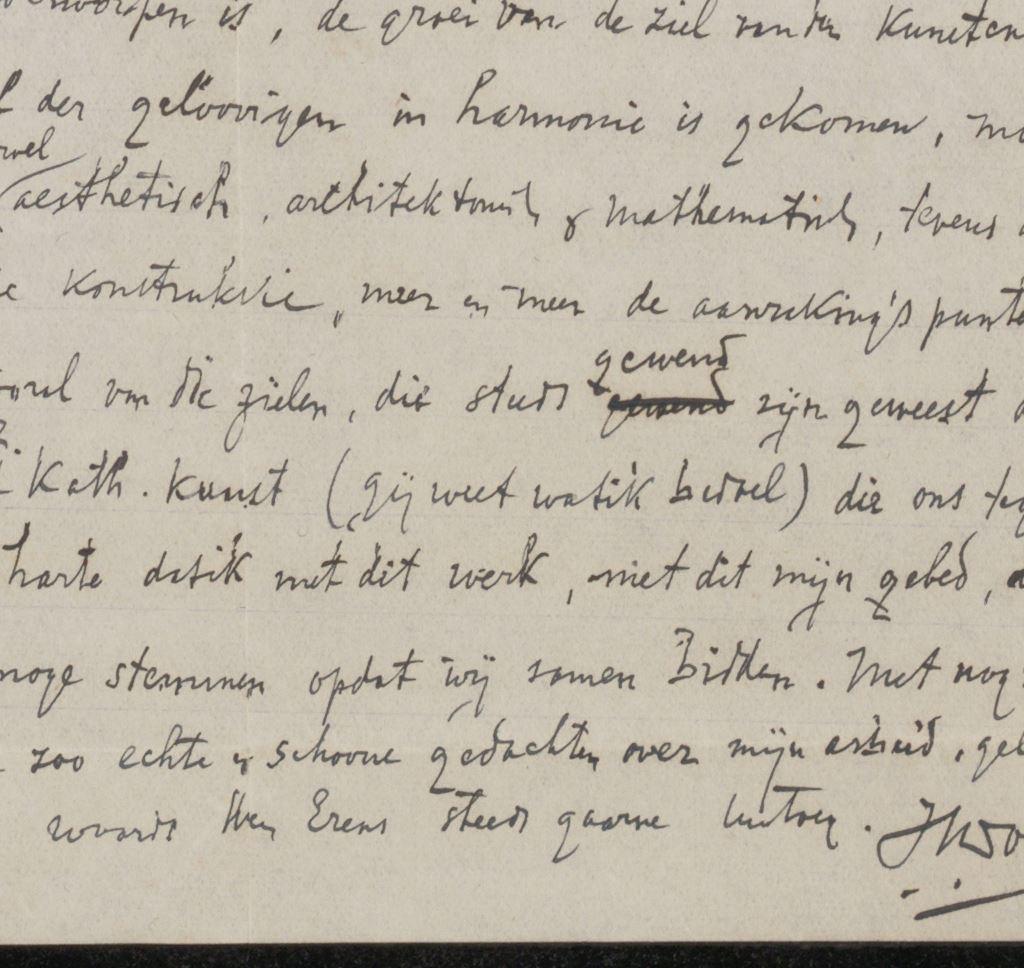 is, de groei van de ziel van den Kunsten
der geloovigen in harmonie is gekomen, m
wel
aesthetisch, architektonisch & mathematisch, tevens
konstruksie, meer en meer de aanraking's punte
van die zielen, die steeds gewend
gewend zijn geweest
Kath. kunst (gij weet wat ik bedoel) die ons
harte dat ik met dit werk, met dit mijn gebed,
moge stemmen opdat wij samen Bidden. Met nog
zoo echte en schoone gedachten over mijn arbeid,
waarde Heer Erens steeds gaarne